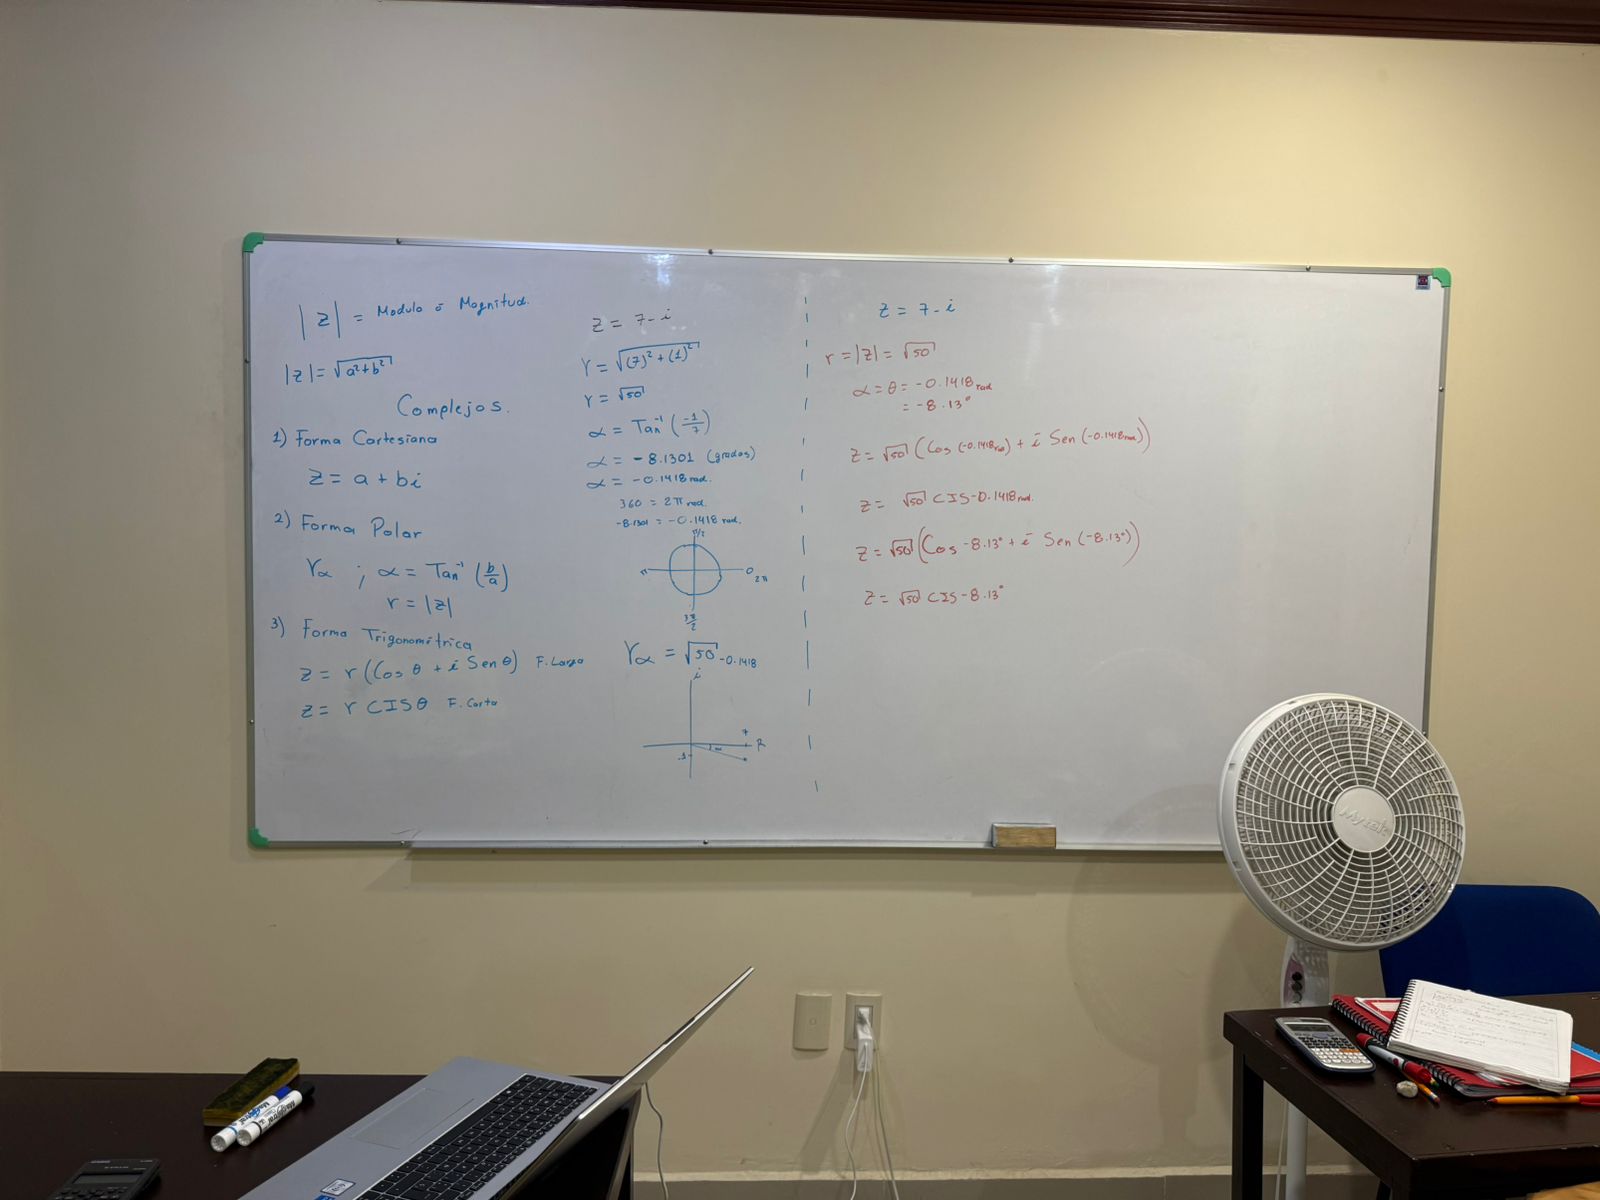 |z| = Modulo ó Magnitud.
|z| = √a²+b²
Complejos.
1) Forma Cartesiana
z = a + bi
2) Forma Polar
rα ; α = Tan⁻¹ (b/a)
r = |z|
3) Forma Trigonométrica
z = r (Cos θ + i Sen θ) F. Larga
z = r CIS θ F. Corta
z = 7 - i
r = √(7)² + (1)²
r = √50
α = Tan⁻¹ (-1/7)
α = -8.1301 (grados)
α = -0.1418 rad.
360 = 2π rad.
-8.1301 = -0.1418 rad.
π/2
π
0
2π
3π/2
rα = √50 -0.1418
i
7
R
-1
z = 7 - i
r = |z| = √50
α = θ = -0.1418 rad
= -8.13°
z = √50 (Cos (-0.1418 rad) + i Sen (-0.1418 rad))
z = √50 CIS -0.1418 rad.
z = √50 (Cos -8.13° + i Sen (-8.13°))
z = √50 CIS -8.13°
Mytek